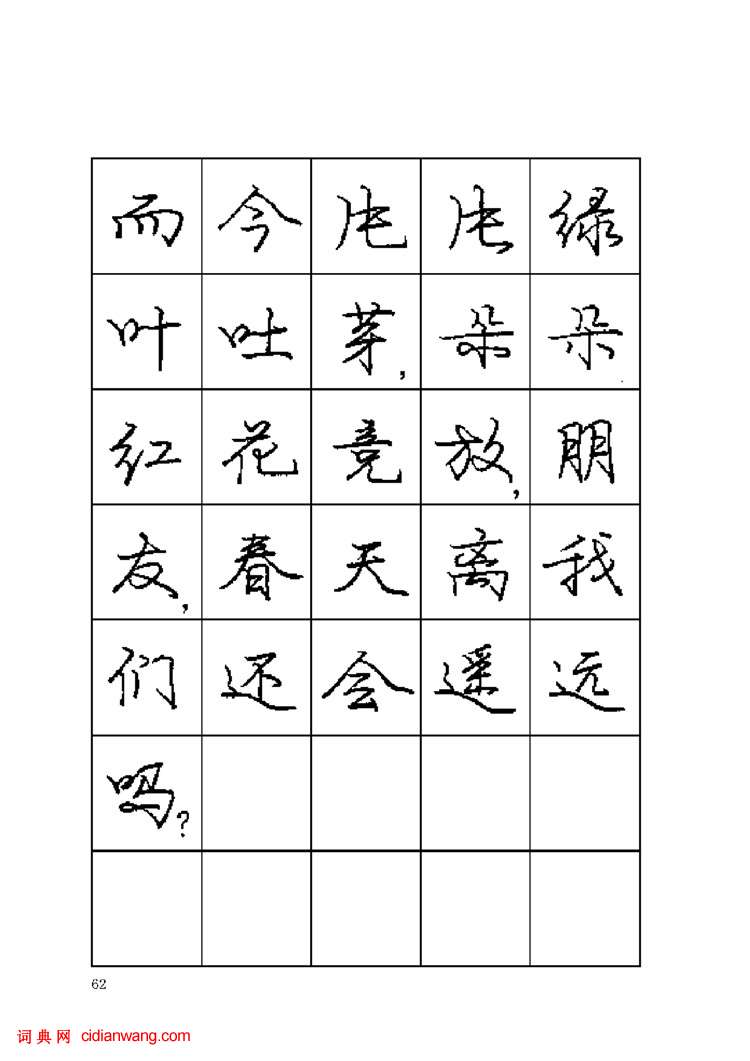 而今片片绿
叶吐芽,朵朵
红花竞放,朋
友,春天离我
们还会遥远
吗?
62
词典网 cidianwang.com